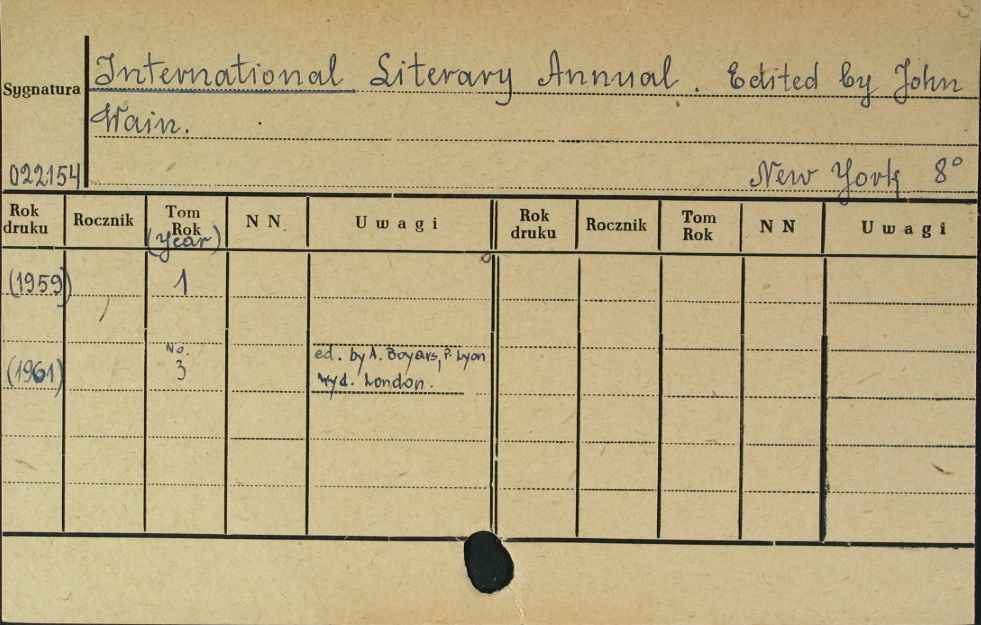 International Literary Annual. Edited by John
Sygnatura
Wain.
022154
New York 8°
Rok druku Rocznik Tom Rok (Year) N N Uwagi Rok druku Rocznik Tom Rok N N Uwagi
(1959) 1
(1961) No. 3 ed. by A. Boyars, P. Lyon
wyd. London.